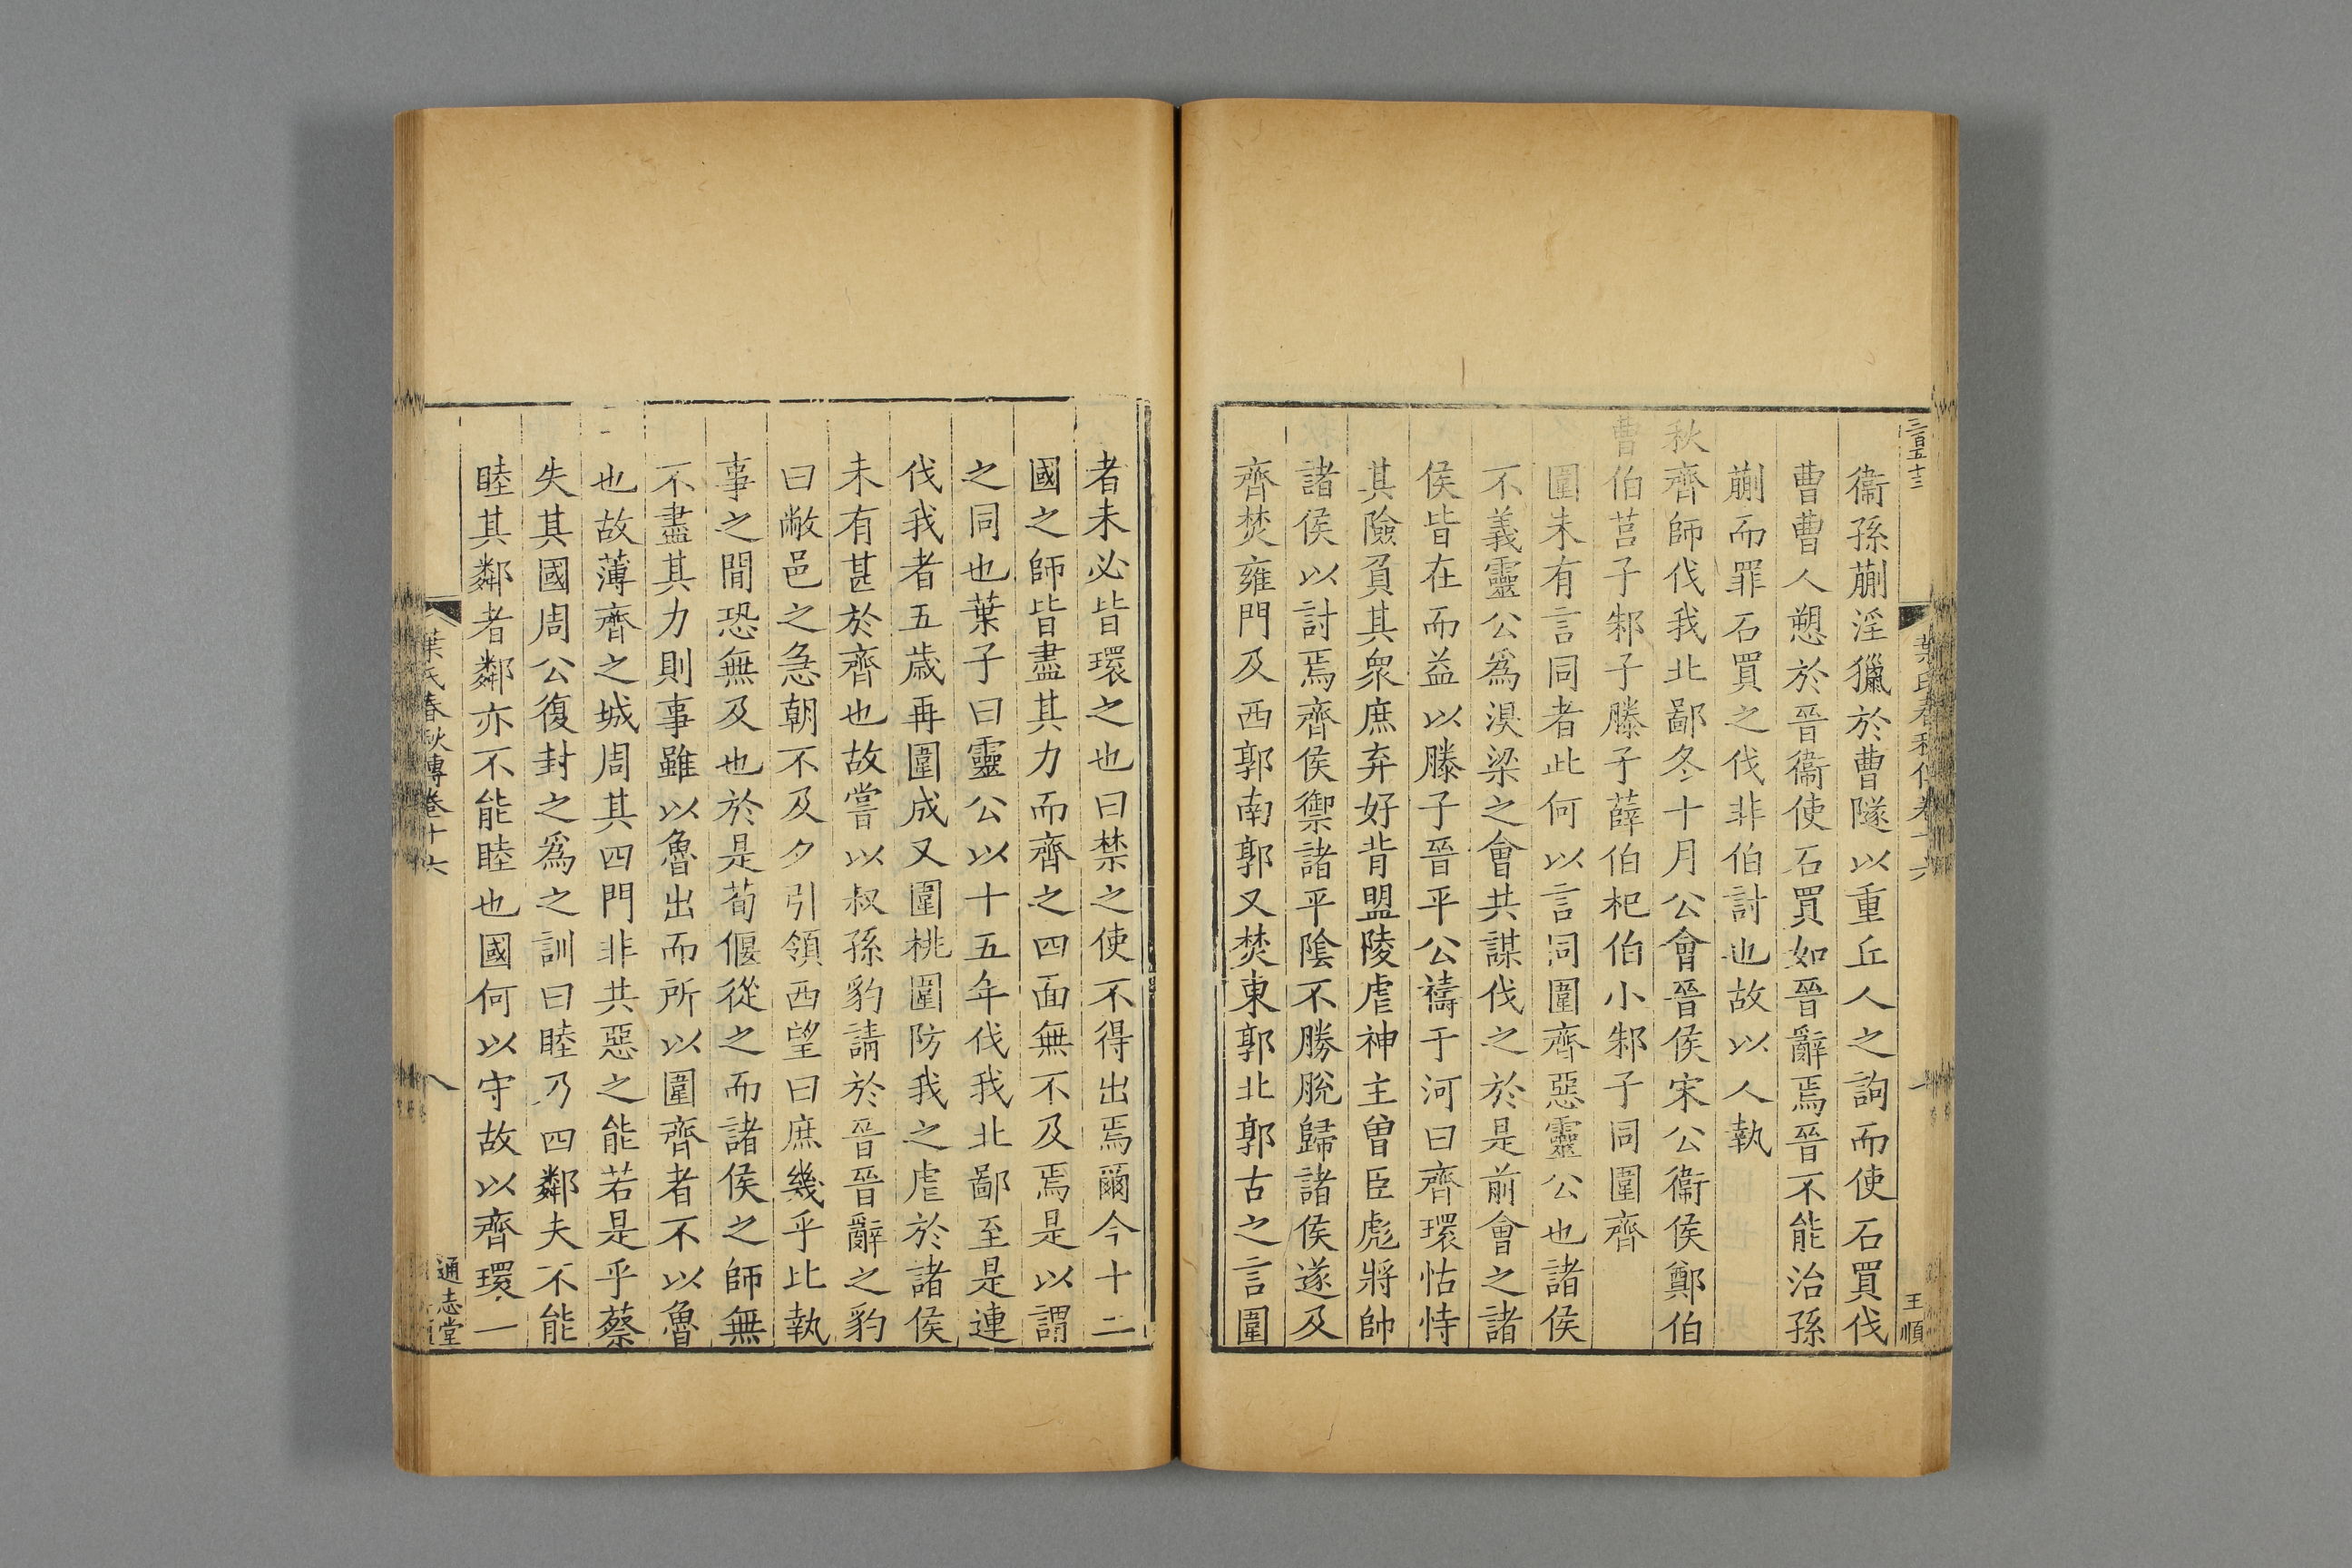 衞孫蒯淫獵於曹隧以重丘人之詢而使石買伐
曹曹人愬於晉衞使石買如晉辭焉晉不能治孫
蒯而罪石買之伐非伯討也故以人執
秋齊師伐我北鄙冬十月公會晉侯宋公衞侯鄭伯
曹伯莒子邾子滕子薛伯杞伯小邾子同圍齊
圍未有言同者此何以言同圍齊惡靈公也諸侯
不義靈公爲湨梁之會共謀伐之於是前會之諸
侯皆在而益以滕子晉平公禱于河曰齊環怙恃
其險負其衆庶弃好背盟陵虐神主曾臣彪將帥
諸侯以討焉齊侯禦諸平隂不勝脫歸諸侯遂及
齊焚雍門及西郭南郭又焚東郭北郭古之言圍
者未必皆環之也曰禁之使不得出焉爾今十二
國之師皆盡其力而齊之四面無不及焉是以謂
之同也葉子曰靈公以十五年伐我北鄙至是連
伐我者五歲再圍成又圍桃圍防我之虐於諸侯
未有甚於齊也故嘗以叔孫豹請於晉晉辭之豹
曰敝邑之急朝不及夕引領西望曰庶幾乎比執
事之閒恐無及也於是荀偃從之而諸侯之師無
不盡其力則事雖以魯出而所以圍齊者不以魯
也故薄齊之城周其四門非共惡之能若是乎蔡
失其國周公復封之爲之訓曰睦乃四鄰夫不能
睦其鄰者鄰亦不能睦也國何以守故以齊環一
葉氏春秋傳卷十六
八
通志堂
三百五十三
葉氏春秋傳卷十六
王順